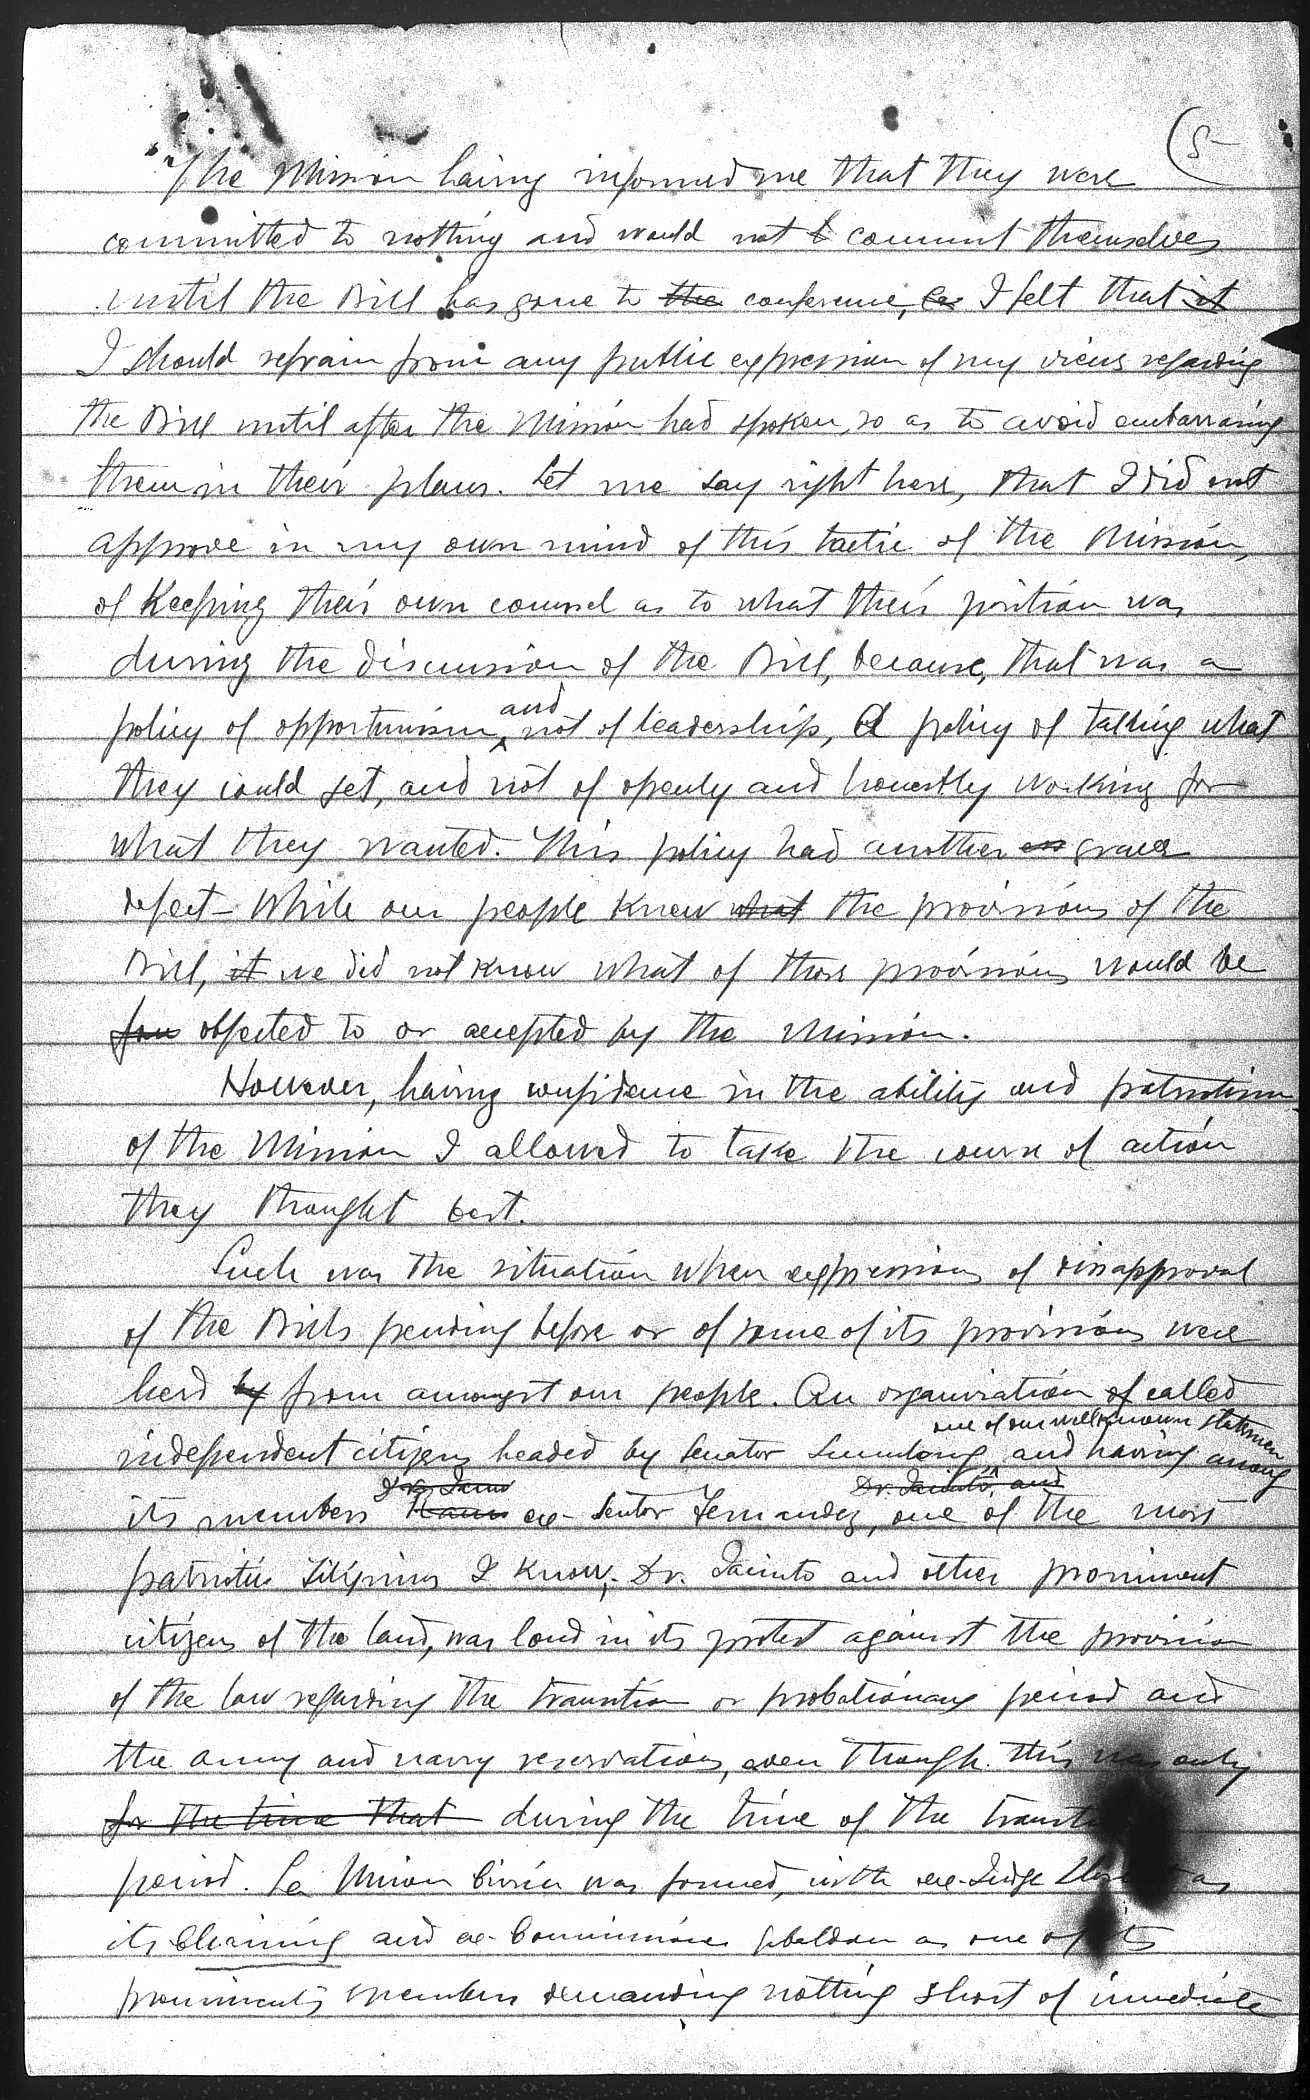 (5-
"The Mission having informed me that they were
committed to nothing and would not commit themselves
until the Bill has gone to the conference, I felt that it
I should refrain from any public expression of my views regarding
the Bill until after the Mission had spoken, so as to avoid embarrassing
them in their plans. Let me say right here, that I did not
approve in my own mind of this tactic of the Mission,
of Keeping their own counsel as to what their position was
during the discussion of the Bill, because, that was a
policy of opportunism and not of leadership, a policy of taking what
they could get, and not of openly and honestly working for
what they wanted. This policy had another grave
defect - While our people knew what the provisions of the
Bill, it we did not know what of those provisions would be
objected to or accepted by the Mission.
However, having confidence in the ability and patriotism
of the Mission I allowed to take the course of action
they thought best.
Such was the situation when expressions of disapproval
of the Bills pending before or of some of its provisions were
herd by from amongst our people. An organization of called
one of our well known statesmen
independent citizens headed by Senator Sumulong, and having among
Dr. Jacinto, and
its members ex-Sentor Fernandez, one of the most
patriotic Filipinos I know, Dr. Jacinto and other prominent
citizens of the land, was loud in its protest against the provision
of the law regarding the transition or probationary period and
the army and navy reservations, even though this was only
for the time that during the time of the
period. La Union Civica was formed, with ex-Judge as
its and ex-Commissioner as one of its
prominents members demanding nothing short of immediate